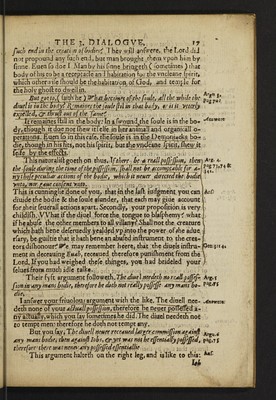 THE 3. DIALOGVE. 17
such end in the creation of bodies? They will answere, the Lord did
not propound any such end, but man brought them vpon him by
sinne. Euen so doe I. Man by his sinne bringeth (sometimes) that
body of his to be a receptacle and habitation for the vncleane spirit,
which otherwise should be the habitation of God, and temple for
the holy ghost to dwell in.
But goe to, (saith he) What becomes of the soule, all the while the
diuell is in the body? Remaines the soule still in the body, or is it vtterly
expelled, or thrust out of the same?
It remaines still in the body: In a swound the soule is in the bo-
dy, though it doe not shew it selfe, in her animall and organicall o-
perations. Euen so in this case, the soule is in the Demoniacks bo-
dy, though in him, not his, but the vncleane spirit, shew it
selfe by the effects.
This naturalist goeth on thus. If there be a reall possession, then
the soule during the time of the possession, shall not be accomptable for a-
ny those peculiar actions of the body, which it neuer directed that body
vnto, nor gaue consent vnto.
That is cunningly done of you, that in the last iudgment you can
diuide the bodie & the soule asunder, that each may giue account
for their seuerall actions apart. Secondly, your proposition is very
childish. What if the diuell force the tongue to blasphemy? what
if he abuse the other members to all villany? Shall not the creature
which hath bene deseruedly yealded vp into the power of the adue
rsary, be guiltie that it hath bene an abused instrument to the crea-
tors dishonor? We may remember heere, that the diuels instru-
ment in deceauing Euah, receaued therefore punishment from the
Lord. If you had weighed these thinges, you had besided your
selues from much idle talke.
Their first argument followeth. The diuel needeth no reall posses-
sion in any mans bodie, therefore he doth not really possesse any mans bo
die.
I answer your friuolous argument with the like. The diuell nee-
deth none of your actuall possession, therefore he neuer possessed a-
ny actually, which you say sometimes he did. The diuel needeth not
to tempt men: therefore he doth not tempt any.
But you say, The diuell neuer receaued larger commission against
any mans bodie, then against Iob, & yet was not he essentially possessed,
therefore there was neuer any possessed essentially.
This argument halteth on the right leg, and is like to this:
Iob
Answer.
Answer.
Ans.